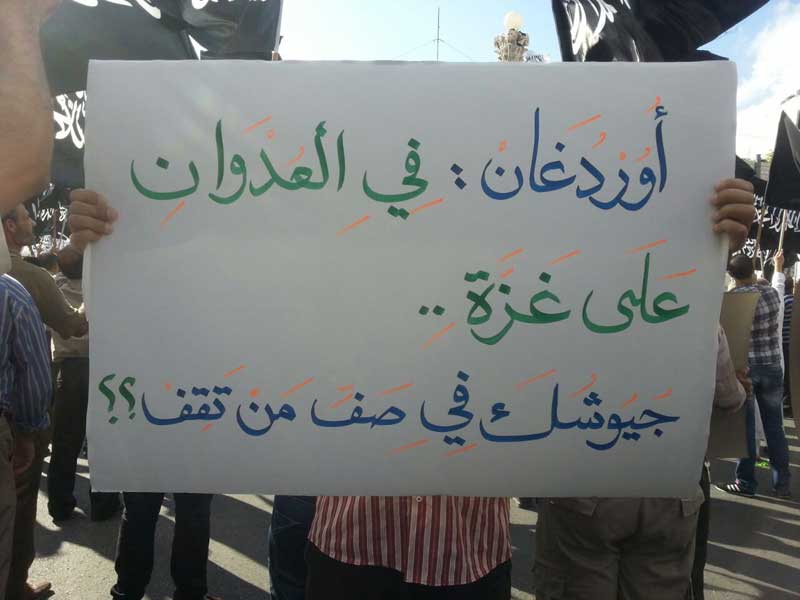 أُوْرْدُغَانْ: فِي الْعُدْوَانِ
عَلَى غَزَّةَ ..
جُيُوشُكَ فِي صَفِّ مَنْ تَقِفُ؟؟